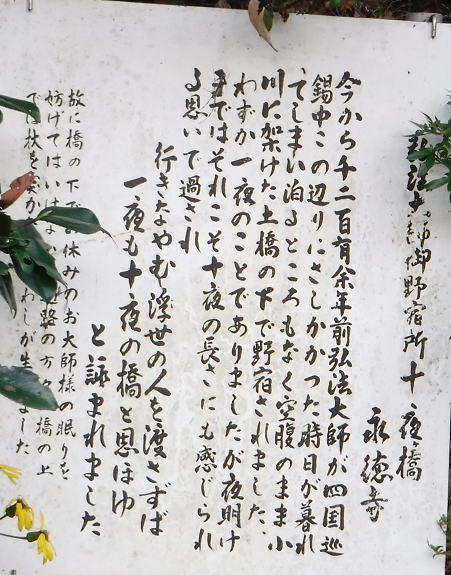 弘法大師御野宿所十夜橋
永徳寺
今から千二百有余年前弘法大師が四国巡
錫中この辺りにさしかかった時日が暮れ
てしまい泊るところもなく空腹のまま小
川に架けた土橋の下で野宿されました、
わずか一夜のことでありましたが夜明け
まではそれこそ十夜の長さにも感じられ
る思いで過され
行きなやむ浮世の人を渡さずば
一夜も十夜の橋と思ほゆ
と詠まれました
故に橋の下でお休みのお大師様の眠りを
妨げてはいけ 遍路の方々 橋の上
で 杖を わしが生 ました